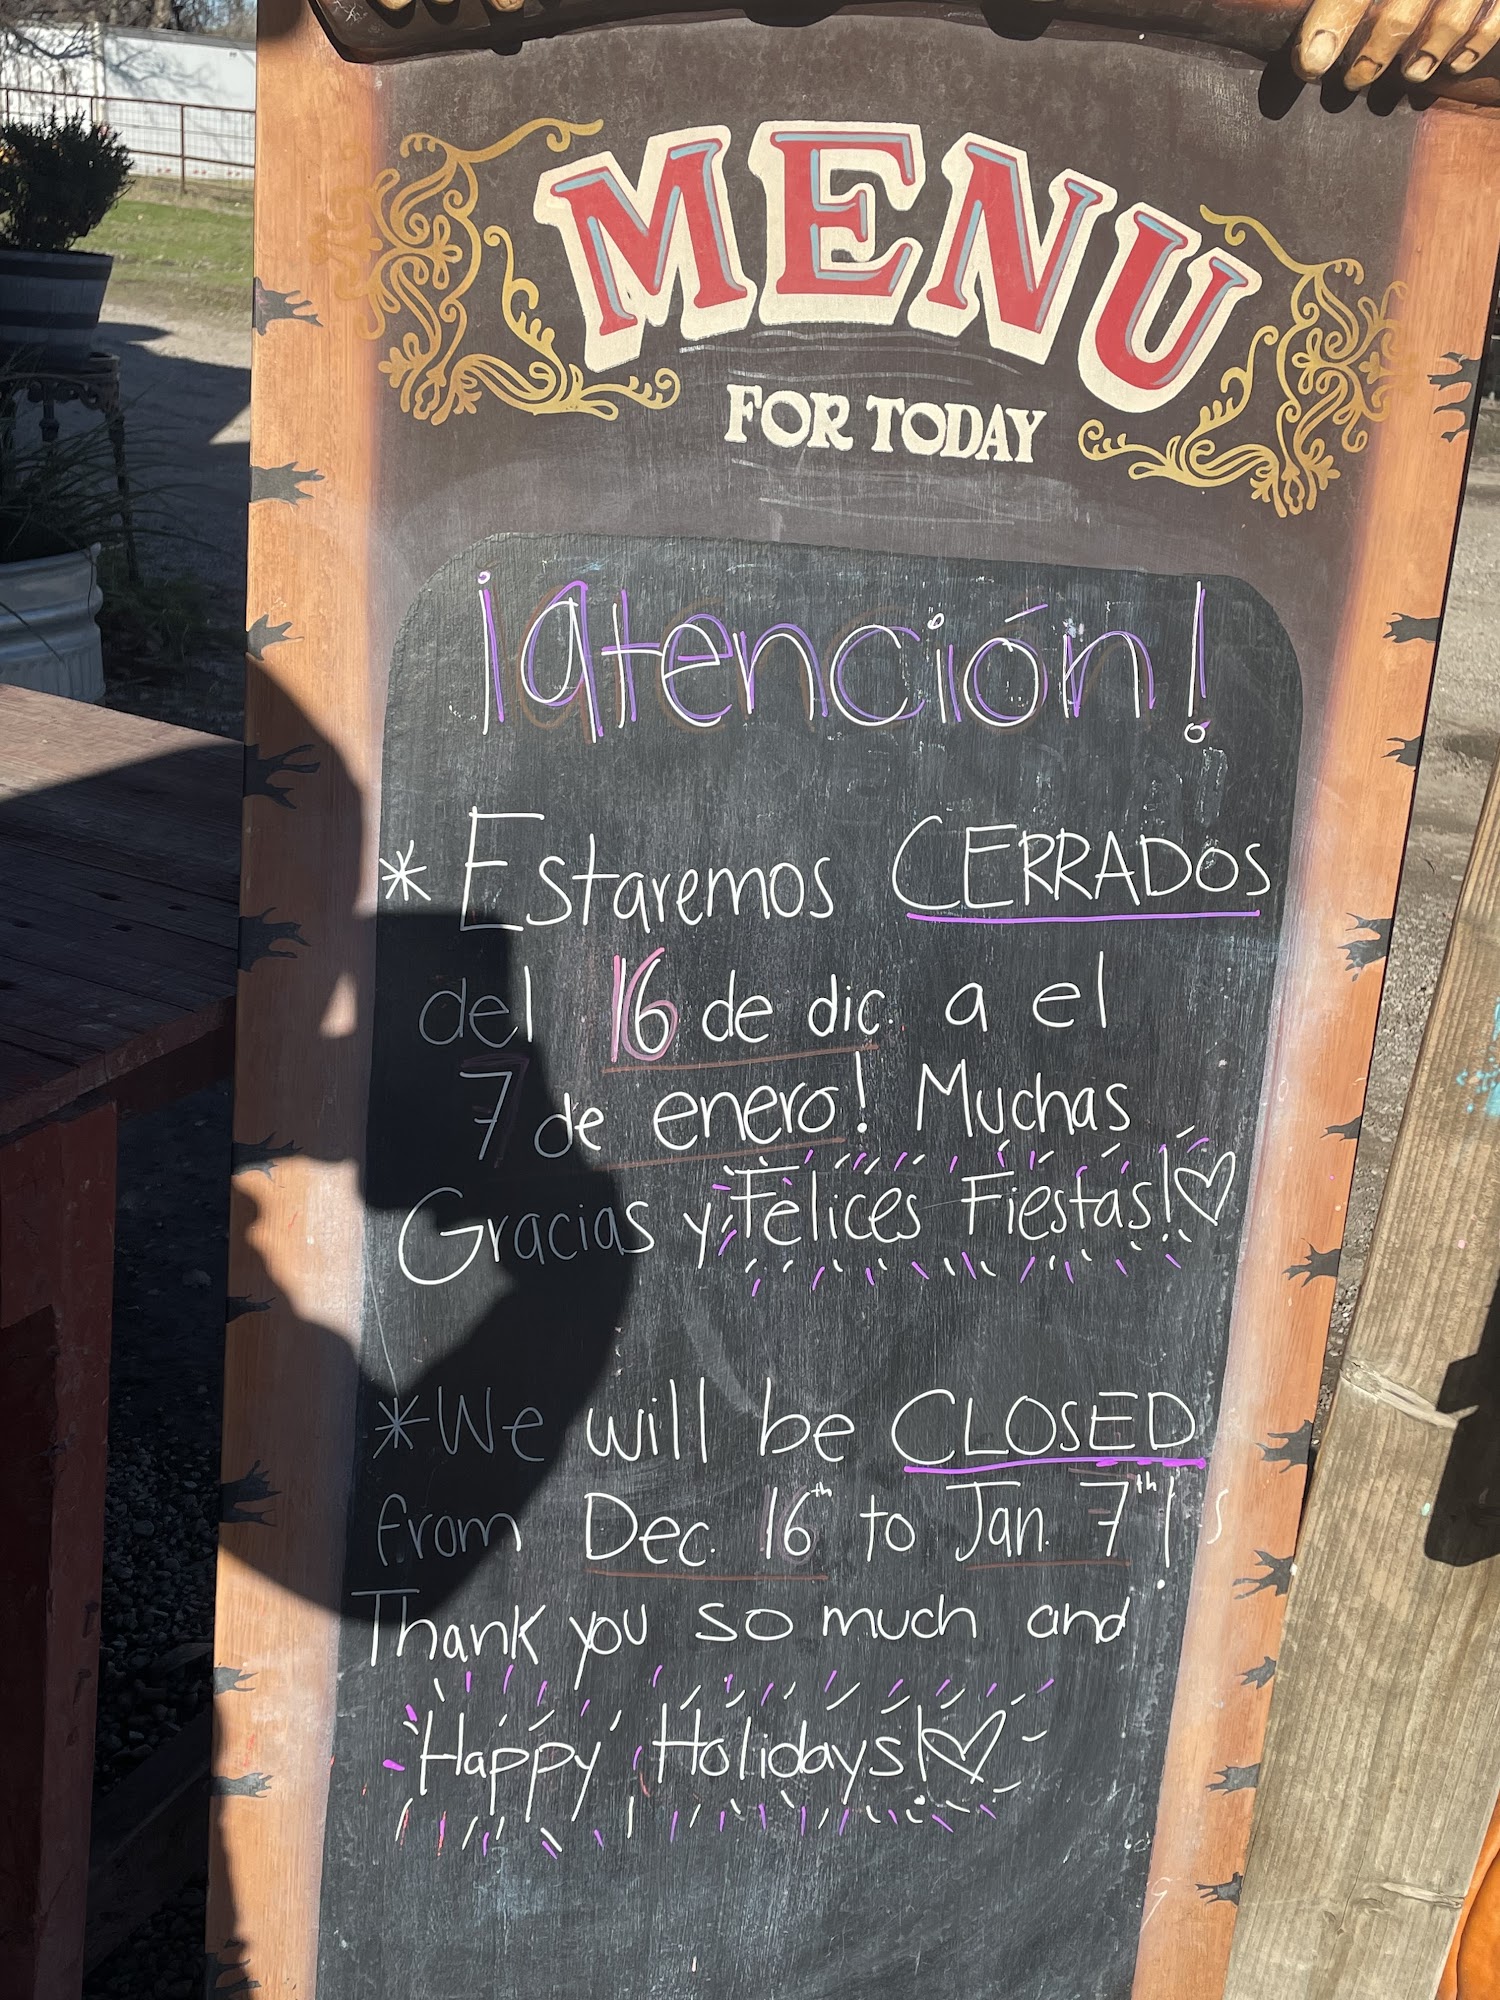 MENU
FOR TODAY
¡atención!
* Estaremos CERRADOS
del 16 de dic. a el
7 de enero! Muchas
Gracias y Felices Fiestas!
*We will be CLOSED
from Dec. 16th to Jan. 7th!
Thank you so much and
Happy Holidays!